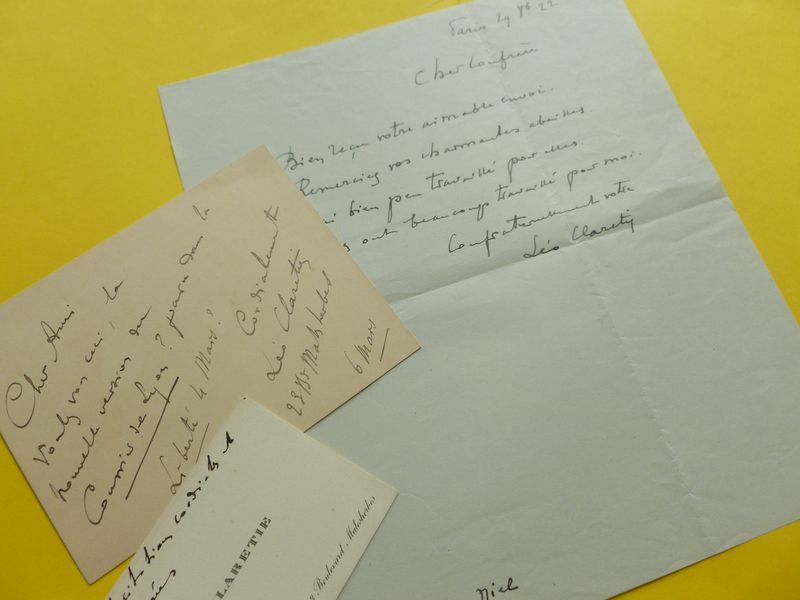 Paris 29 Xb 22
Cher Confrère
Bien reçu votre aimable envoi.
Remerciez vos charmantes abeilles.
bien peu travaillé pour elles.
ont beaucoup travaillé pour moi.
Confraternellement votre
Léo Claretie
Cher Ami
Voulez vous ceci, la
nouvelle version du
Courrier de Lyon? paru dans la
Liberté 4 Mars?
Cordialement
Léo Claretie
23 Bd Malesherbes
6 Mars
cordiales
LARETIE
Boulevard Malesherbes